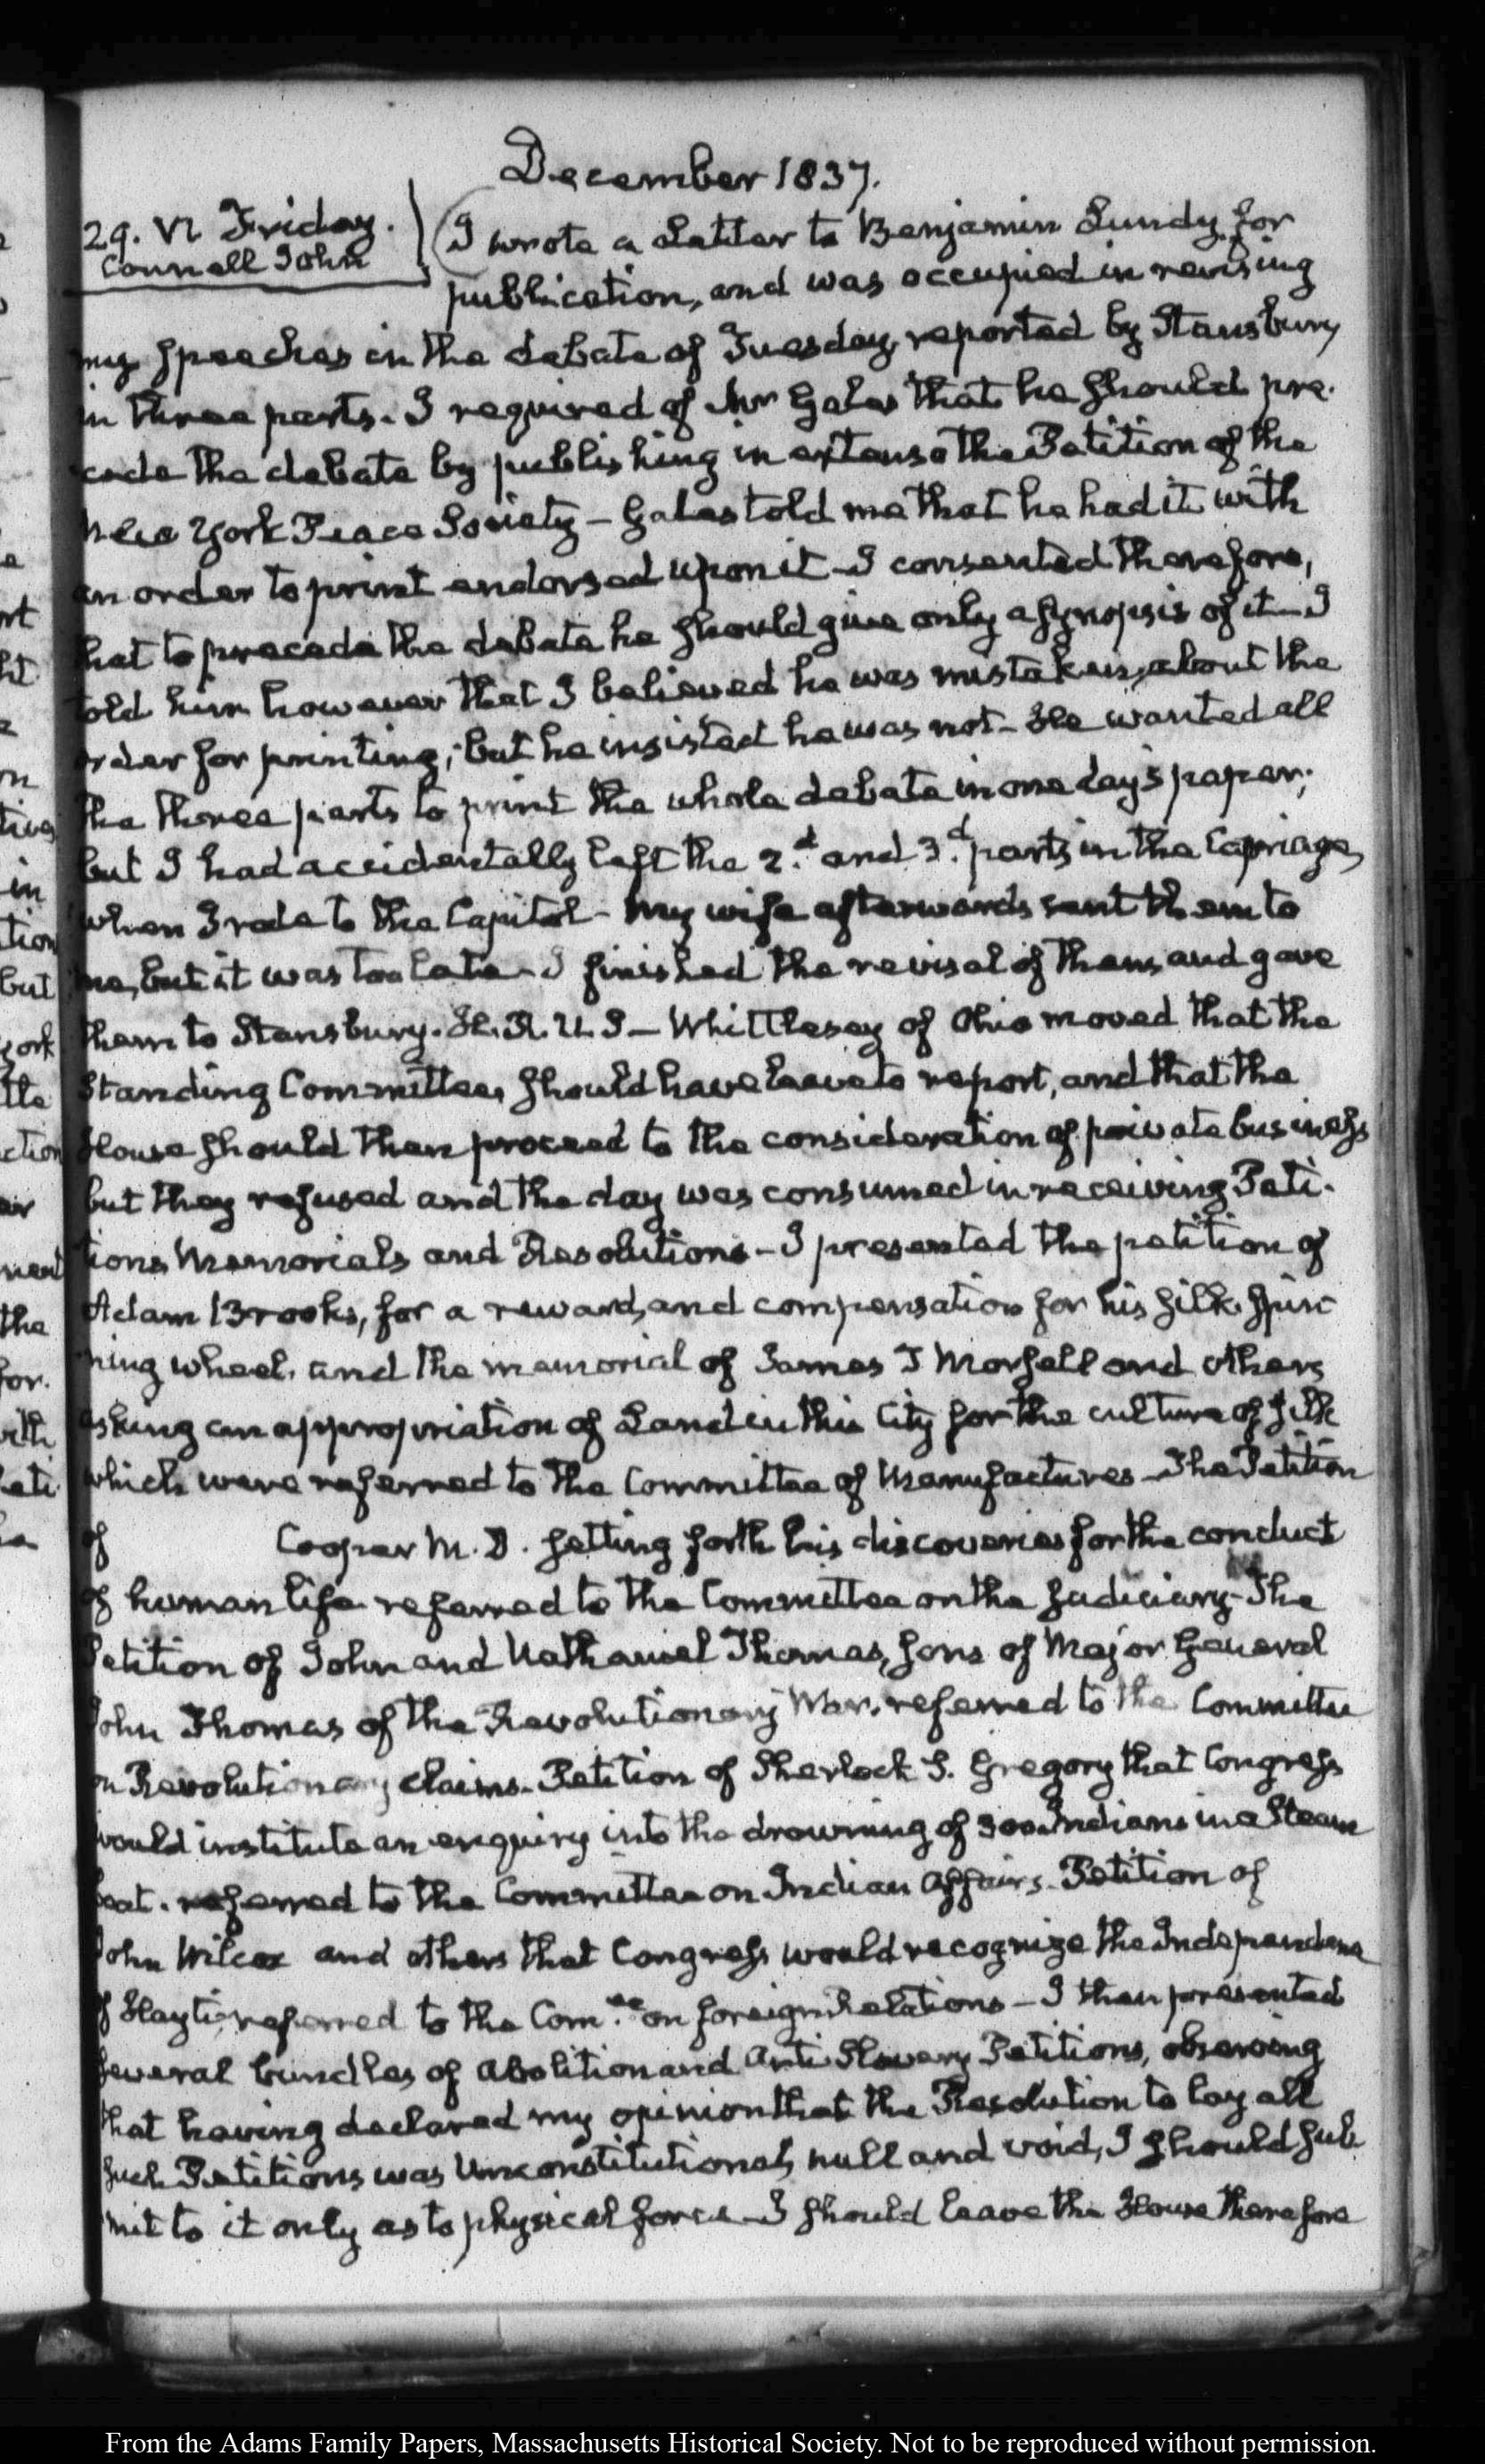 December 1837.
29. VI Friday.
Connell John
I wrote a Letter to Benjamin Lundy for
publication, and was occupied in revising
my Speeches in the debate of Tuesday, reported by Stansbury
in three parts. I required of Mr Gales that he should pre-
cede the debate by publishing in extenso the Petition of the
New York Peace Society – Gales told me that he had it with
an order to print endorsed upon it – I consented therefore,
that to precede the debate he should give only a Synopsis of it – I
told him however that I believed he was mistaken, about the
order for printing; but he insisted he was not – He wanted all
the three parts to print the whole debate in one day's paper;
but I had accidentally left the 2.d and 3.d parts in the Carriage,
when I rode to the Capitol – My wife afterwards sent them to
me, but it was too late – I finished the revisal of them, and gave
them to Stansbury. H. R. U. S – Whittlesey of Ohio moved that the
Standing Committees should have leave to report, and that the
House should then proceed to the consideration of private business
but they refused and the day was consumed in receiving Peti-
tions Memorials and Resolutions – I presented the petition of
Adam Brooks, for a reward, and compensation for his silk spin-
ning wheel. and the memorial of James T Morsell and others
asking an appropriation of Land in this City for the culture of silk
which were referred to the Committee of Manufactures – The Petition
of Cooper M. D. setting forth his discoveries for the conduct
of human life. referred to the Committee on the Judiciary – The
Petition of John and Nathaniel Thomas, Sons of Major General
John Thomas of the Revolutionary War. referred to the Committee
on Revolutionary claims. Petition of Sherlock S. Gregory that Congress
would institute an enquiry into the drowning of 300 Indians in a Steam
boat. referred to the Committee on Indian Affairs. Petition of
John Wilcox and others that Congress would recognize the Independence
of Hayti, referred to the Com.ee on foreign Relations – I then presented
several bundles of Abolition and Anti Slavery Petitions, observing
that having declared my opinion that the Resolution to lay all
such Petitions was Unconstitutional, null and void, I should sub
mit to it only as to physical force – I should leave the House therefore
From the Adams Family Papers, Massachusetts Historical Society. Not to be reproduced without permission.